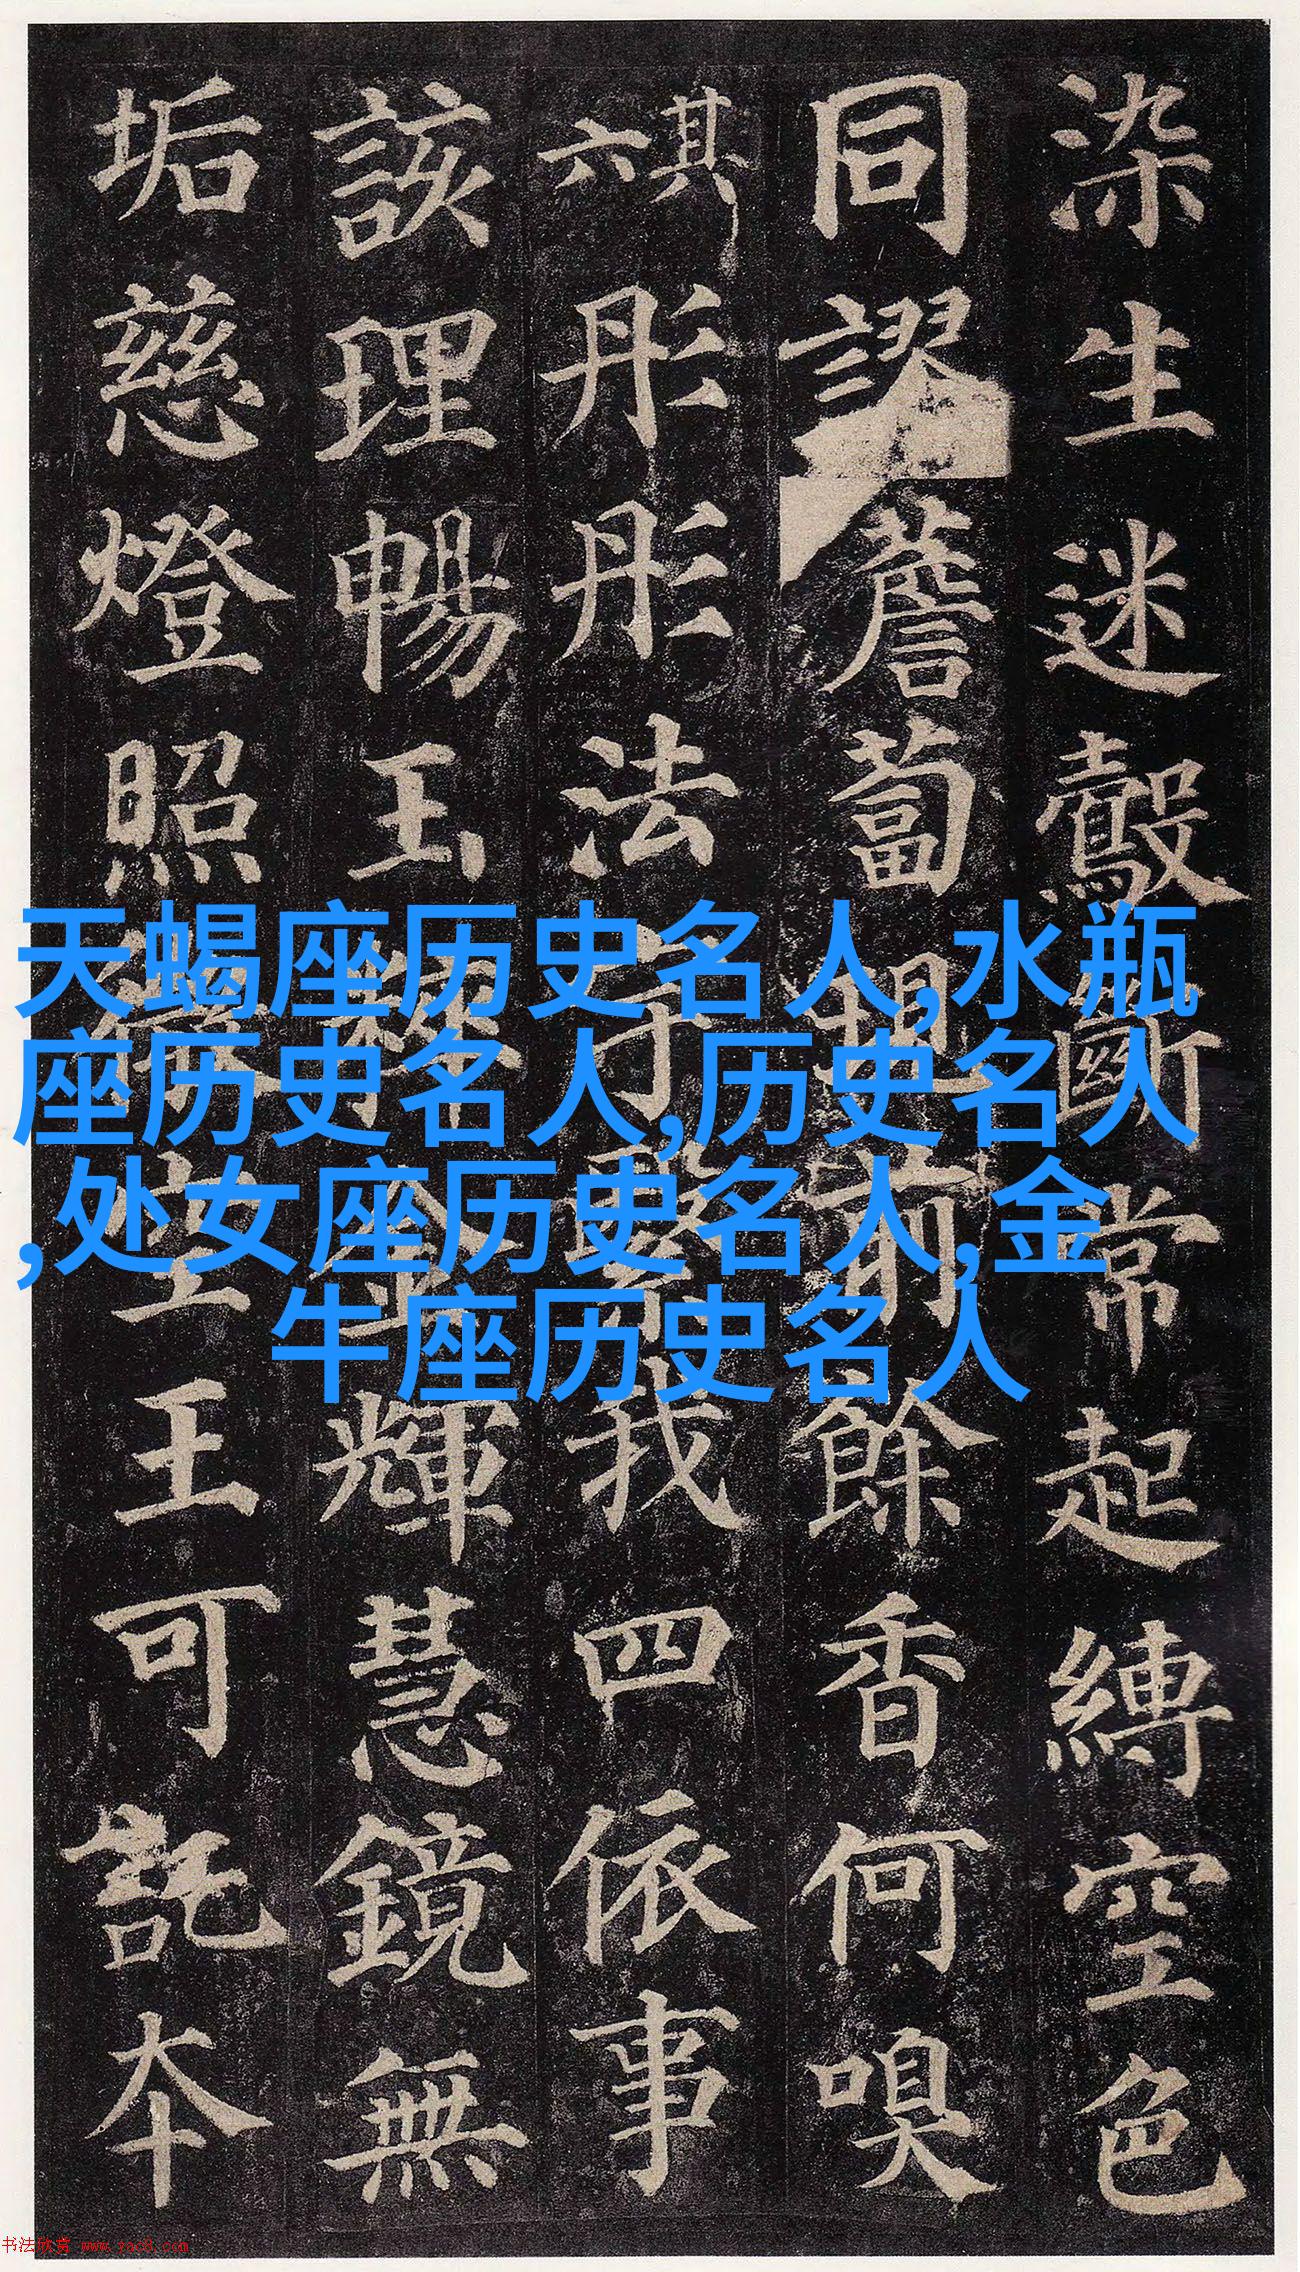 染生迷鷇斷常起縛空色
同謬薝蔔
前餘香何嗅
其六
彤彤法
我四依事
該理暢玉
輝慧鏡無
垢慈燈照
王可託本
天蝎座历史名人,水瓶
座历史名人,历史名人
,处女座历史名人,金
牛座历史名人
书法欣赏 www.yac8.com